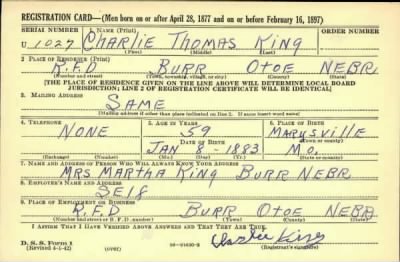 REGISTRATION CARD—(Men born on or after April 28, 1877 and on or before February 16, 1897)
SERIAL NUMBER 1. NAME (Print) ORDER NUMBER
U 1027 CHARLIE THOMAS KING
(First) (Middle) (Last)
2. PLACE OF RESIDENCE (Print)
R.F.D BURR OTOE NEBR.
(Number and street) (Town, township, village, or city) (County) (State)
[THE PLACE OF RESIDENCE GIVEN ON THE LINE ABOVE WILL DETERMINE LOCAL BOARD
JURISDICTION; LINE 2 OF REGISTRATION CERTIFICATE WILL BE IDENTICAL]
3. MAILING ADDRESS
SAME
(Mailing address if other than place indicated on line 2. If same insert word same)
4. TELEPHONE 5. AGE IN YEARS 6. PLACE OF BIRTH
NONE 59 MARYSVILLE
DATE OF BIRTH (Town or county)
JAN 8 - 1883 MO.
(Exchange) (Number) (Mo.) (Day) (Yr.) (State or country)
7. NAME AND ADDRESS OF PERSON WHO WILL ALWAYS KNOW YOUR ADDRESS
MRS MARTHA KING BURR NEBR
8. EMPLOYER'S NAME AND ADDRESS
SELF
9. PLACE OF EMPLOYMENT OR BUSINESS
R.F.D BURR OTOE NEBR
(Number and street or R. F. D. number) (Town) (County) (State)
I AFFIRM THAT I HAVE VERIFIED ABOVE ANSWERS AND THAT THEY ARE TRUE.
D. S. S. Form 1
(Revised 4-1-42) (over) Charlie King
(Registrant's signature)